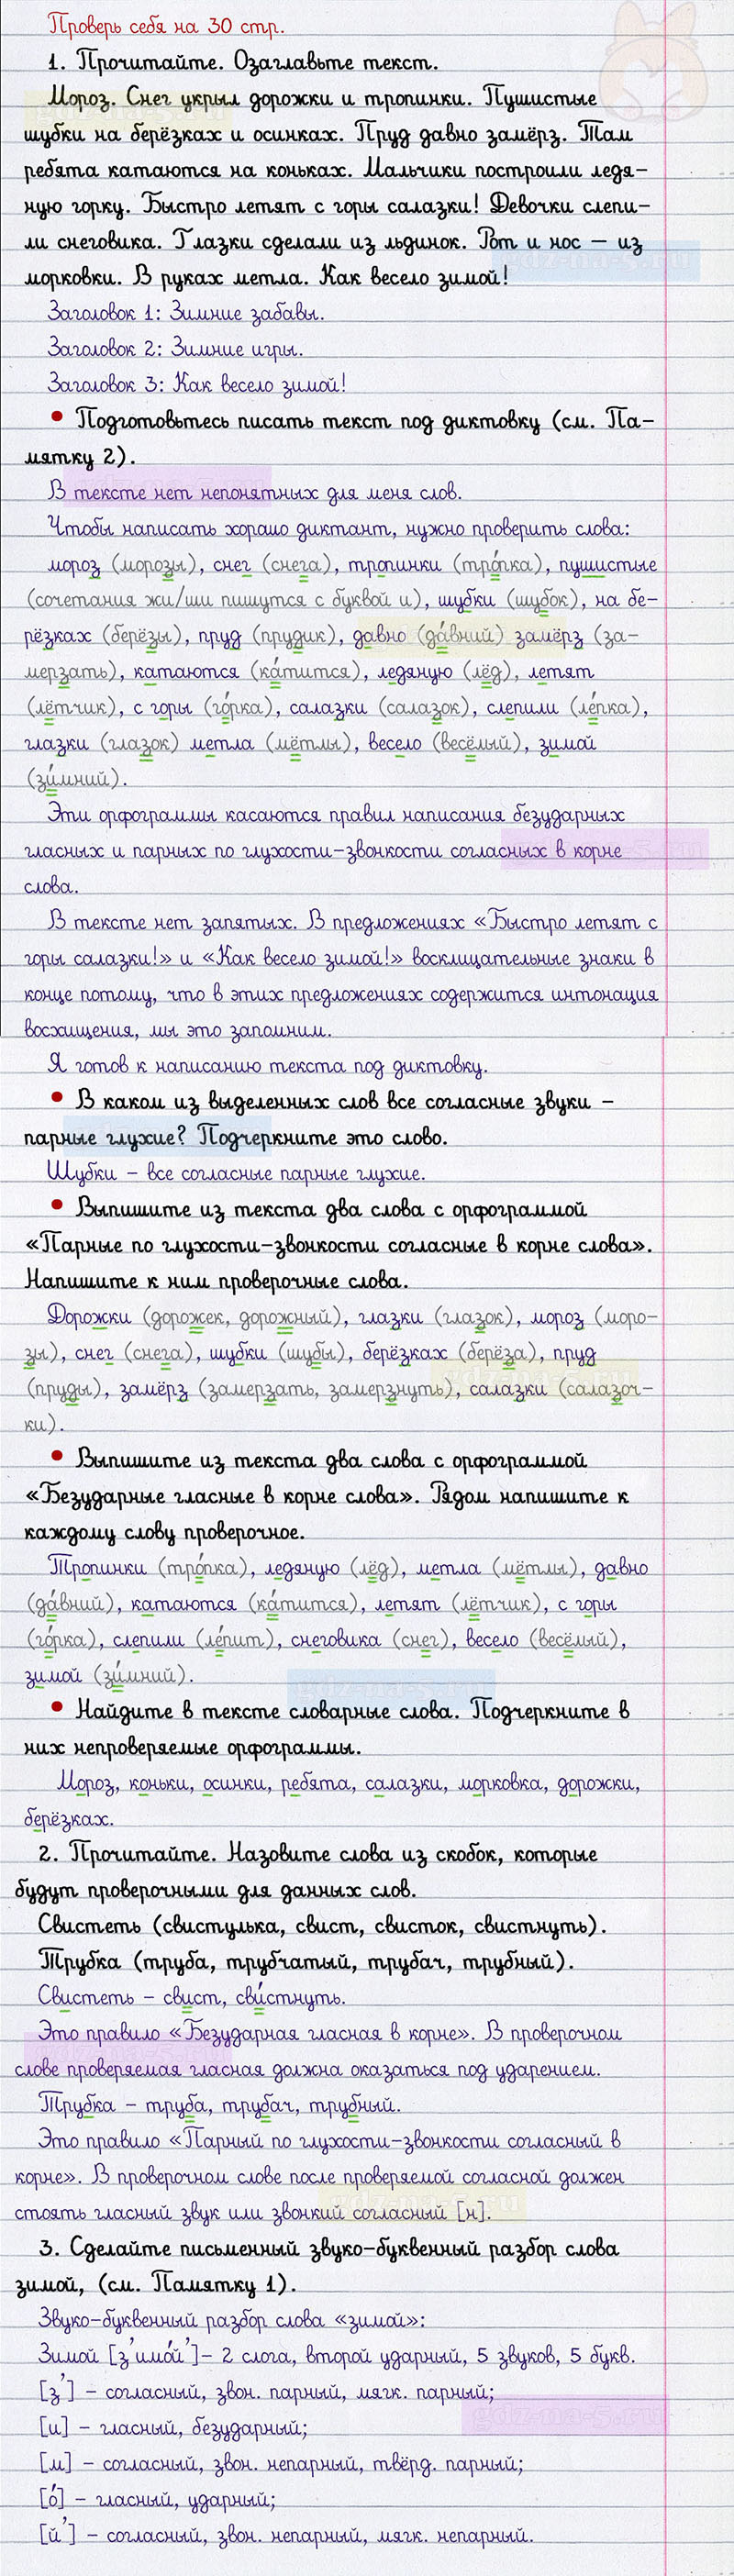 Проверь себя на 30 стр.
1. Прочитайте. Озаглавьте текст.
Мороз. Снег укрыл дорожки и тропинки. Пушистые
шубки на берёзках и осинках. Пруд давно замёрз. Там
ребята катаются на коньках. Мальчики построили ледя-
ную горку. Быстро летят с горы салазки! Девочки слепи-
ли снеговика. Глазки сделали из льдинок. Рот и нос – из
морковки. В руках метла. Как весело зимой!
Заголовок 1: Зимние забавы.
Заголовок 2: Зимние игры.
Заголовок 3: Как весело зимой!
• Подготовьтесь писать текст под диктовку (см. Па-
мятку 2).
В тексте нет непонятных для меня слов.
Чтобы написать хорошо диктант, нужно проверить слова:
мороз (морозы), снег (снега), тропинки (тро́пка), пушистые
(сочетания жи/ши пишутся с буквой и), шубки (шубок), на бе-
рёзках (берёзы), пруд (прудик), давно (да́вний) замёрз (за-
мерзать), катаются (ка́тится), ледяную (лёд), летят
(лётчик), с горы (го́рка), салазки (салазок), слепили (ле́пка),
глазки (глазок) метла (мётлы), весело (весёлый), зимой
(зи́мний).
Эти орфограммы касаются правил написания безударных
гласных и парных по глухости-звонкости согласных в корне
слова.
В тексте нет запятых. В предложениях «Быстро летят с
горы салазки!» и «Как весело зимой!» восклицательные знаки в
конце потому, что в этих предложениях содержится интонация
восхищения, мы это запомним.
Я готов к написанию текста под диктовку.
• В каком из выделенных слов все согласные звуки –
парные глухие? Подчеркните это слово.
Шубки – все согласные парные глухие.
• Выпишите из текста два слова с орфограммой
«Парные по глухости-звонкости согласные в корне слова».
Напишите к ним проверочные слова.
Дорожки (дорожек, дорожный), глазки (глазок), мороз (моро-
зы), снег (снега), шубки (шубы), берёзках (берёза), пруд
(пруды), замёрз (замерзать, замерзнуть), салазки (салазоч-
ки).
• Выпишите из текста два слова с орфограммой
«Безударные гласные в корне слова». Рядом напишите к
каждому слову проверочное.
Тропинки (тро́пка), ледяную (лёд), метла (мётлы), давно
(да́вний), катаются (ка́тится), летят (лётчик), с горы
(го́рка), слепили (ле́пит), снеговика (снег), весело (весёлый),
зимой (зи́мний).
• Найдите в тексте словарные слова. Подчеркните в
них непроверяемые орфограммы.
Мороз, коньки, осинки, ребята, салазки, морковка, дорожки,
берёзках.
2. Прочитайте. Назовите слова из скобок, которые
будут проверочными для данных слов.
Свистеть (свистулька, свист, свисток, свистнуть).
Трубка (труба, трубчатый, трубач, трубный).
Свистеть – свист, сви́стнуть.
Это правило «Безударная гласная в корне». В проверочном
слове проверяемая гласная должна оказаться под ударением.
Трубка – труба, трубач, трубный.
Это правило «Парный по глухости-звонкости согласный в
корне». В проверочном слове после проверяемой согласной должен
стоять гласный звук или звонкий согласный [н].
3. Сделайте письменный звуко-буквенный разбор слова
зимой, (см. Памятку 1).
Звуко-буквенный разбор слова «зимой»:
Зимой [з'имо́й']– 2 слога, второй ударный, 5 звуков, 5 букв.
[з'] – согласный, звон. парный, мягк. парный;
[и] – гласный, безударный;
[м] – согласный, звон. непарный, твёрд. парный;
[о́] – гласный, ударный;
[й'] – согласный, звон. непарный, мягк. непарный.